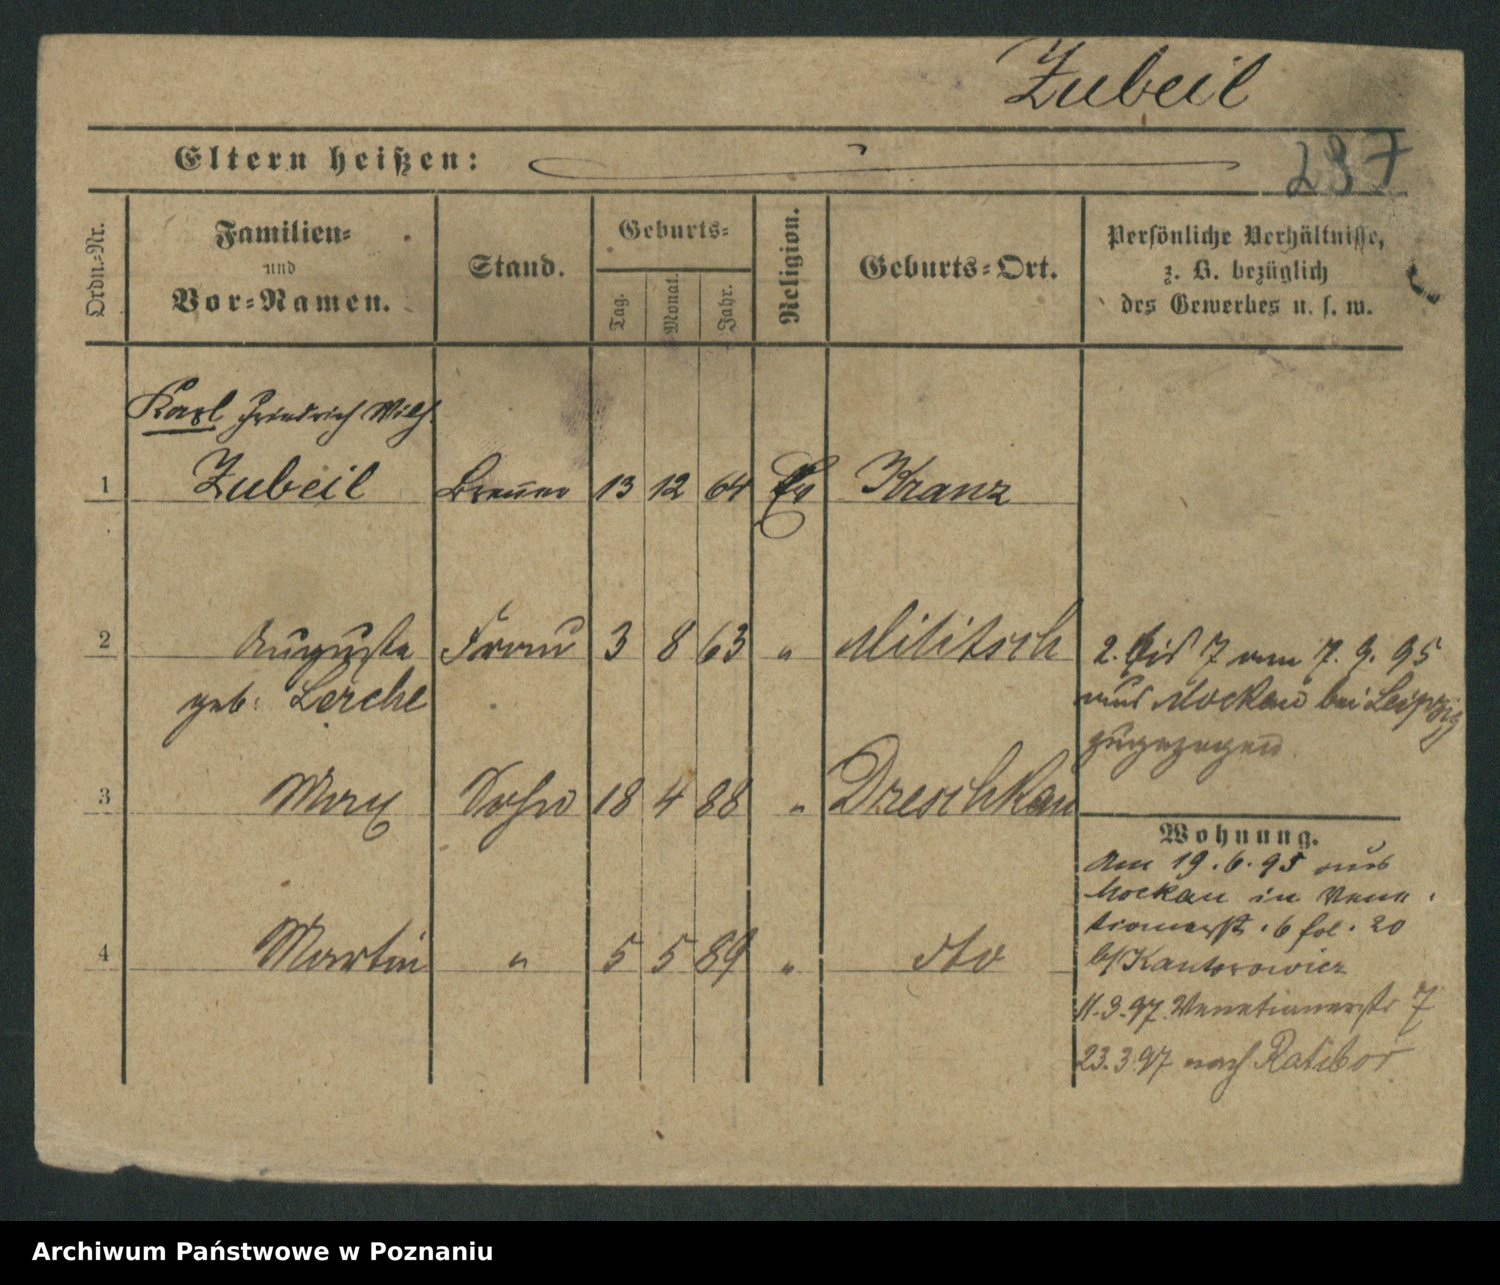 Zubeil
Eltern heißen:
237
Ordn.-Nr.
Familien-
und
Vor-Namen.
Stand.
Geburts-
Tag.
Monat.
Jahr.
Religion.
Geburts-Ort.
Persönliche Verhältnisse,
z. B. bezüglich
des Gewerbes u. s. w.
Karl Friedrich Wilh.
1 Zubeil Brauer 13 12 64 Ev Kranz
2 Auguste Frau 3 8 63 " Militsch
geb. Lerche
2. bis 7 am 7. 9. 95
aus Mockau bei Leipzig
zugezogen
3 Max Sohn 18 4 88 " Dreschkau
4 Martin " 5 5 89 " dto
Wohnung.
Am 19. 6. 95 aus
Mockau in Vene-
tianerstr. 6 fol. 20
b/ Kantorowicz
11.3.97. Venetianerstr 7
23.3.97 nach Ratibor
Archiwum Państwowe w Poznaniu